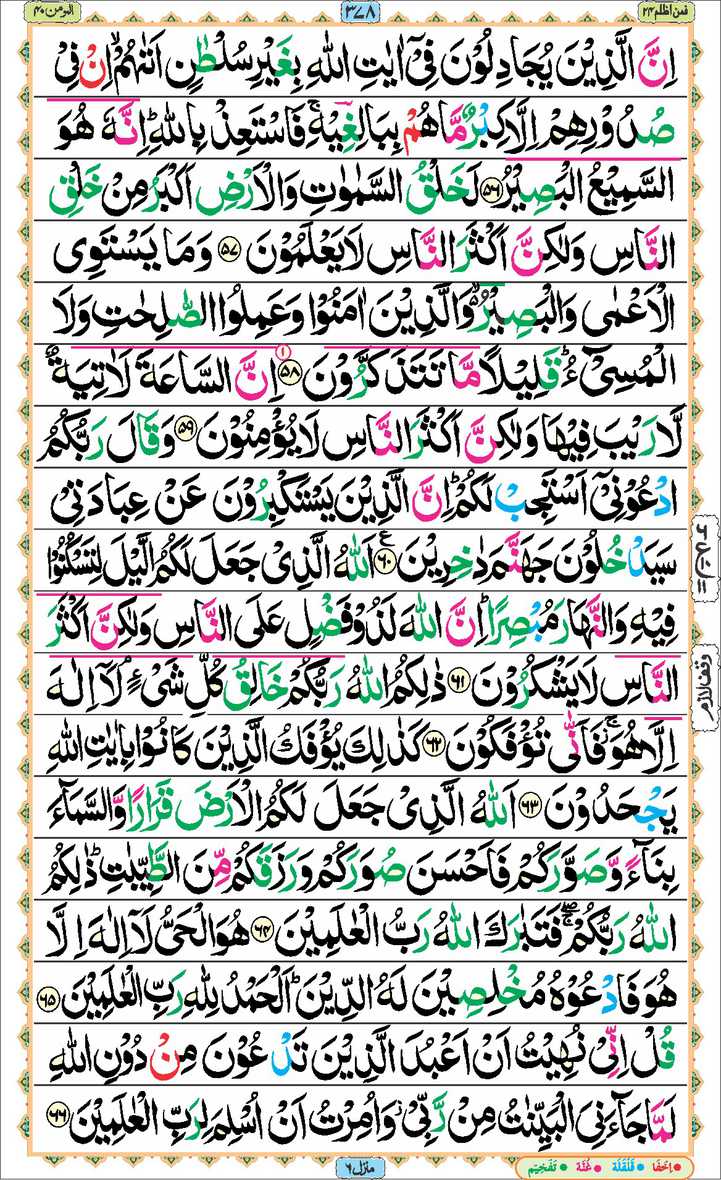 فمن اظلم ۲۴
۳۷۸
المؤمن ۴۰
اِنَّ الَّذِيْنَ يُجَادِلُوْنَ فِيْۤ اٰيٰتِ اللّٰهِ بِغَيْرِ سُلْطٰنٍ اَتٰىهُمْ ۙ اِنْ فِيْ
صُدُوْرِهِمْ اِلَّا كِبْرٌ مَّا هُمْ بِبَالِغِيْهِ ۚ فَاسْتَعِذْ بِاللّٰهِ ؕ اِنَّهٗ هُوَ
السَّمِيْعُ الْبَصِيْرُ ﴿۵۶﴾ لَخَلْقُ السَّمٰوٰتِ وَالْاَرْضِ اَكْبَرُ مِنْ خَلْقِ
النَّاسِ وَلٰكِنَّ اَكْثَرَ النَّاسِ لَا يَعْلَمُوْنَ ﴿۵۷﴾ وَمَا يَسْتَوِى
الْاَعْمٰى وَالْبَصِيْرُ ۙ وَالَّذِيْنَ اٰمَنُوْا وَعَمِلُوا الصّٰلِحٰتِ وَلَا
الْمُسِيْٓءُ ؕ قَلِيْلًا مَّا تَتَذَكَّرُوْنَ ﴿۵۸﴾ اِنَّ السَّاعَةَ لَاٰتِيَةٌ
لَّا رَيْبَ فِيْهَا وَلٰكِنَّ اَكْثَرَ النَّاسِ لَا يُؤْمِنُوْنَ ﴿۵۹﴾ وَقَالَ رَبُّكُمُ
ادْعُوْنِيْۤ اَسْتَجِبْ لَكُمْ ؕ اِنَّ الَّذِيْنَ يَسْتَكْبِرُوْنَ عَنْ عِبَادَتِيْ
سَيَدْخُلُوْنَ جَهَنَّمَ دٰخِرِيْنَ ﴿۶۰﴾ ع اَللّٰهُ الَّذِيْ جَعَلَ لَكُمُ الَّيْلَ لِتَسْكُنُوْا
فِيْهِ وَالنَّهَارَ مُبْصِرًا ؕ اِنَّ اللّٰهَ لَذُوْ فَضْلٍ عَلَى النَّاسِ وَلٰكِنَّ اَكْثَرَ
النَّاسِ لَا يَشْكُرُوْنَ ﴿۶۱﴾ ذٰلِكُمُ اللّٰهُ رَبُّكُمْ خَالِقُ كُلِّ شَيْءٍ ۘ لَاۤ اِلٰهَ
وقف لازم
اِلَّا هُوَ ۚ فَاَنّٰى تُؤْفَكُوْنَ ﴿۶۲﴾ كَذٰلِكَ يُؤْفَكُ الَّذِيْنَ كَانُوْا بِاٰيٰتِ اللّٰهِ
يَجْحَدُوْنَ ﴿۶۳﴾ اَللّٰهُ الَّذِيْ جَعَلَ لَكُمُ الْاَرْضَ قَرَارًا وَّالسَّمَآءَ
بِنَآءً وَّصَوَّرَكُمْ فَاَحْسَنَ صُوَرَكُمْ وَرَزَقَكُمْ مِّنَ الطَّيِّبٰتِ ؕ ذٰلِكُمُ
اللّٰهُ رَبُّكُمْ ۖۚ فَتَبٰرَكَ اللّٰهُ رَبُّ الْعٰلَمِيْنَ ﴿۶۴﴾ هُوَ الْحَيُّ لَاۤ اِلٰهَ اِلَّا
هُوَ فَادْعُوْهُ مُخْلِصِيْنَ لَهُ الدِّيْنَ ؕ اَلْحَمْدُ لِلّٰهِ رَبِّ الْعٰلَمِيْنَ ﴿۶۵﴾
قُلْ اِنِّيْ نُهِيْتُ اَنْ اَعْبُدَ الَّذِيْنَ تَدْعُوْنَ مِنْ دُوْنِ اللّٰهِ
لَمَّا جَآءَنِيَ الْبَيِّنٰتُ مِنْ رَّبِّيْ ۫ وَاُمِرْتُ اَنْ اُسْلِمَ لِرَبِّ الْعٰلَمِيْنَ ﴿۶۶﴾
منزل ۶
اِخفَا قَلْقَلَة غُنَّة تَفْخِيْم